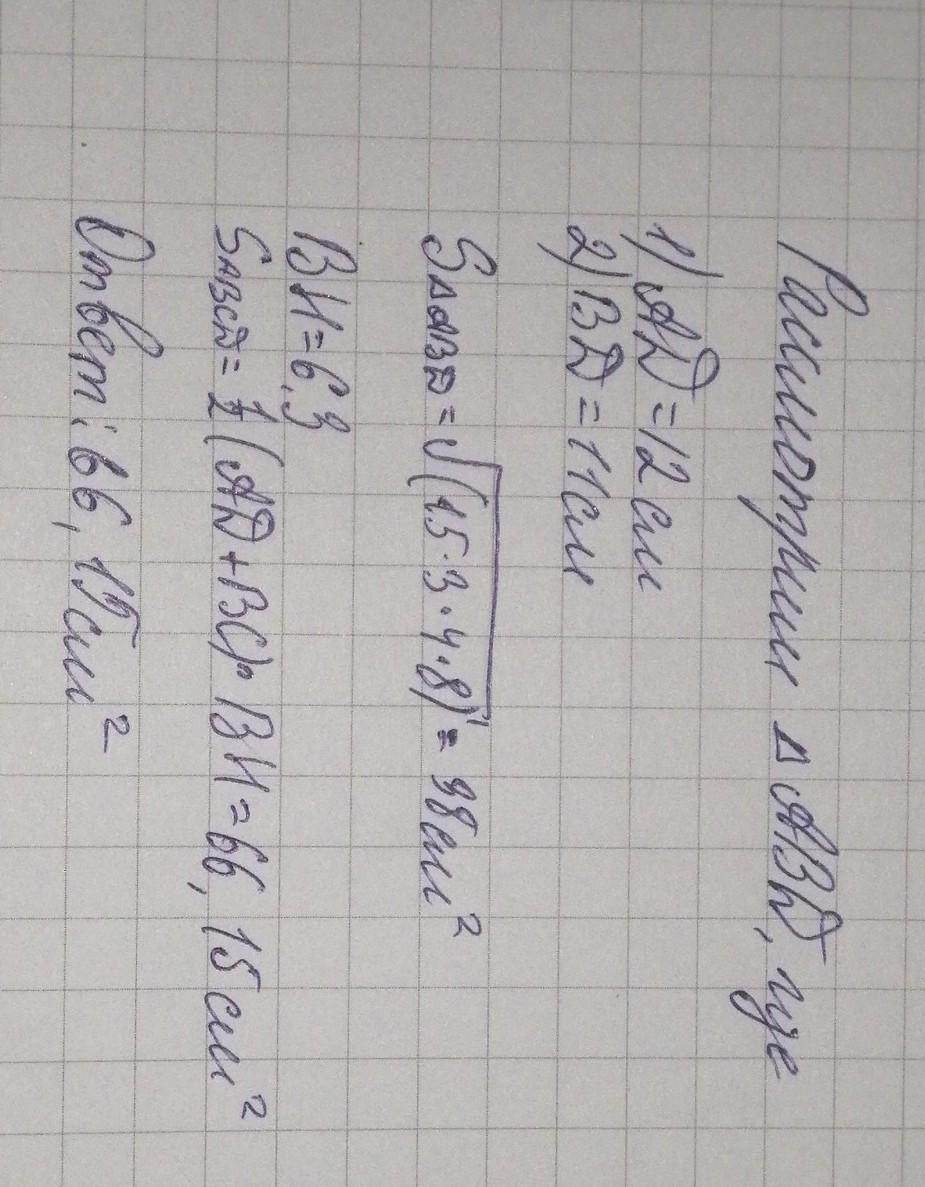 Рассмотрим △ ABD, где
1) AD = 12 см
2) BD = 11 см
S△ABD = √(15·3·4·8) = 38 см²
BH = 6,3
SABCD = 1/2 (AD + BC)· BH = 66,15 см²
Ответ: 66,15 см²